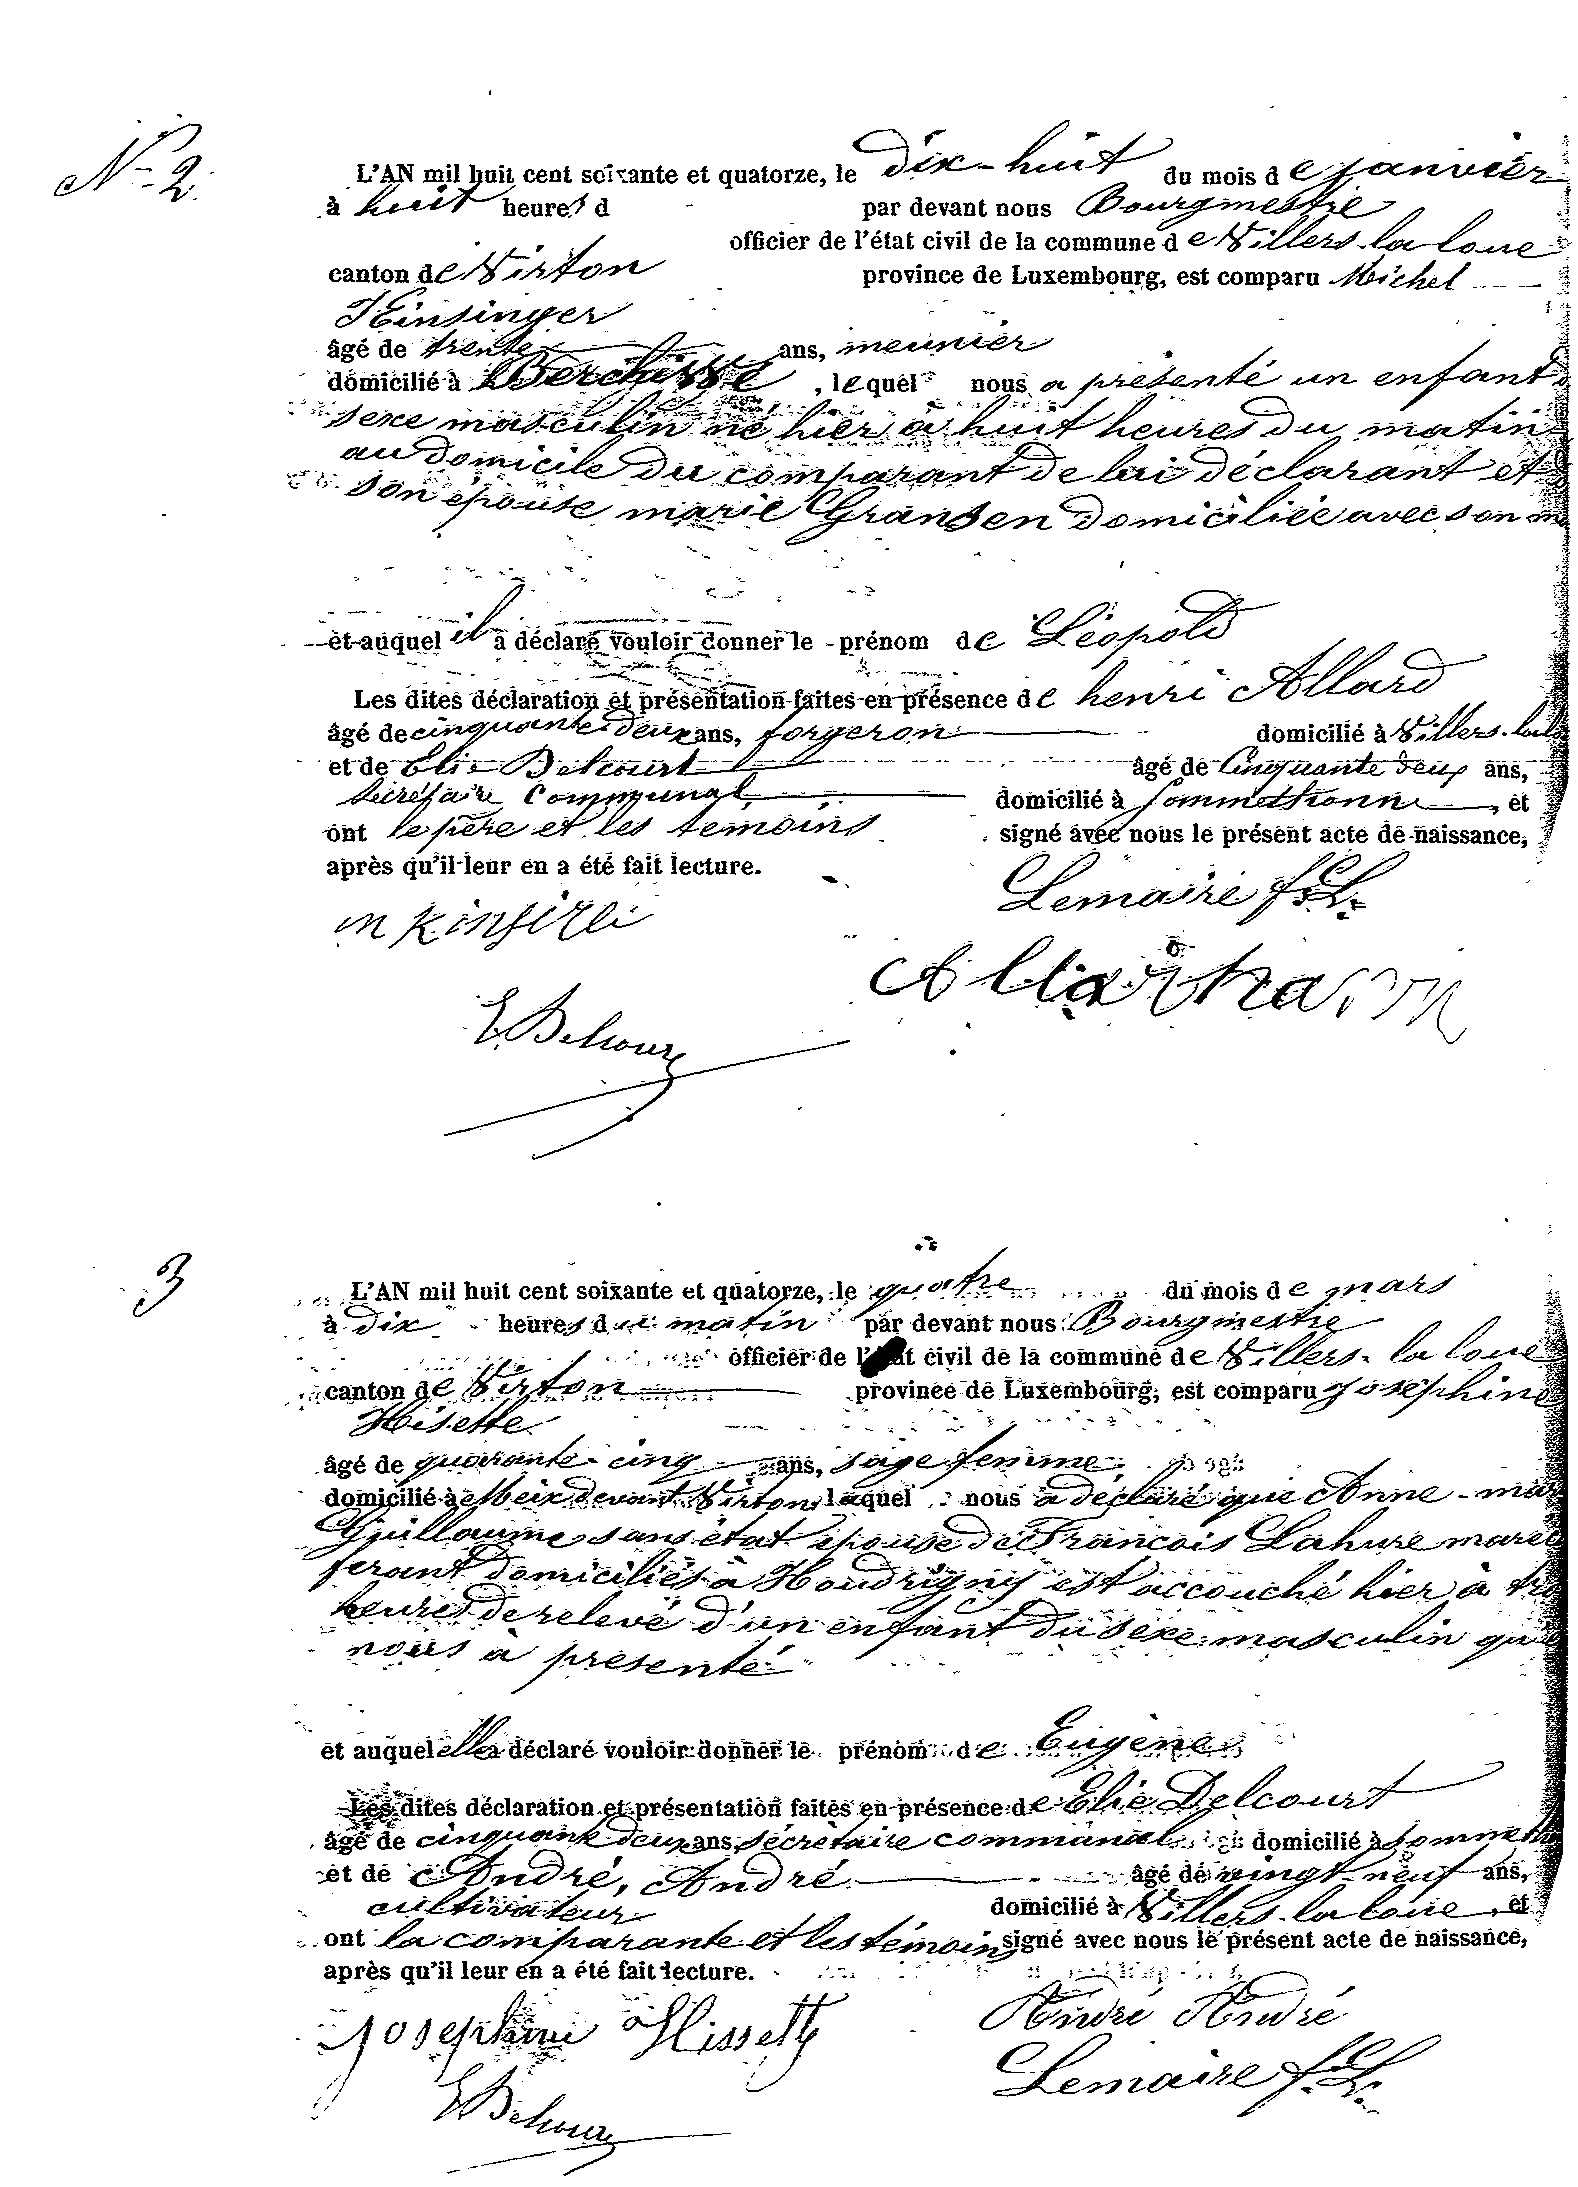 N° 2.
L'AN mil huit cent soixante et quatorze, le dix-huit du mois de janvier
à huit heures d par devant nous Bourgmestre
officier de l'état civil de la commune de Villers-la-loue
canton de Virton province de Luxembourg, est comparu Michel
Kinsinger
âgé de trente ans, meunier
domicilié à Berchivé, lequel nous a présenté un enfant
sexe masculin né hier à huit heures du matin
au domicile du comparant de lui déclarant et
son épouse marie Gransen domiciliée avec son
et auquel il a déclaré vouloir donner le prénom de Léopold
Les dites déclaration et présentation faites en présence de henri Allard
âgé de cinquante deux ans, forgeron domicilié à Villers-la
et de Elie Delcourt âgé de Cinquante deux ans,
Secrétaire Communal domicilié à Sommethonne, et
ont le père et les temoins signé avec nous le présent acte de naissance,
après qu'il leur en a été fait lecture.
Lemaire f. L.
E Delcour
3
L'AN mil huit cent soixante et quatorze, le quatre du mois de mars
à dix heures du matin par devant nous Bourgmestre
officier de l'état civil de la commune de Villers-la loue
canton de Virton province de Luxembourg, est comparu Joséphine
Hisette
âgé de quarante-cinq ans, sage femme
domicilié à Meix devant Virton, laquel nous a déclaré que Anne-mar
Guillaume sans état épouse de Francois Lahure maréc
ferant domiciliés à Houdrigny est accouché hier à tro
heures de relevé d'un enfant du sexe masculin qu
nous à présenté
et auquel elle a déclaré vouloir donner le prénom de Eugène
Les dites déclaration et présentation faites en présence de Elie Delcourt
âgé de cinquante deux ans, sécrètaire communal domicilié à Sommeth
et de André, André âgé de vingt-neuf ans,
cultivateur domicilié à Villers-la loue, et
ont la comparante et les témoins signé avec nous le présent acte de naissance,
après qu'il leur en a été fait lecture.
Joséphine Hissette André André
Lemaire f. L.
E Delcour